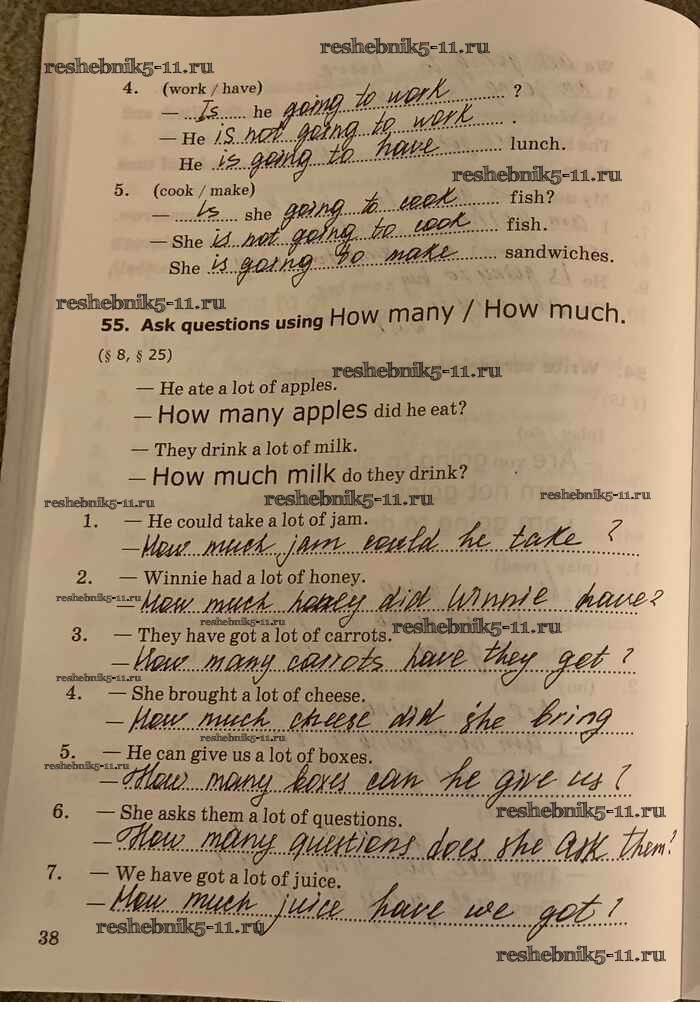 reshebnik5-11.ru
reshebnik5-11.ru
4. (work / have)
— Is he going to work ?
— He is not going to work .
He is going to have lunch.
reshebnik5-11.ru
5. (cook / make)
— Is she going to cook fish?
— She is not going to cook fish.
She is going to make sandwiches.
reshebnik5-11.ru
55. Ask questions using How many / How much.
(§ 8, § 25)
reshebnik5-11.ru
— He ate a lot of apples.
— How many apples did he eat?
— They drink a lot of milk.
— How much milk do they drink?
reshebnik5-11.ru
reshebnik5-11.ru
reshebnik5-11.ru
1. — He could take a lot of jam.
— How much jam could he take ?
2. — Winnie had a lot of honey.
reshebnik5-11.ru
— How much honey did Winnie have?
reshebnik5-11.ru
reshebnik5-11.ru
3. — They have got a lot of carrots.
— How many carrots have they got?
reshebnik5-11.ru
4. — She brought a lot of cheese.
— How much cheese did she bring
reshebnik5-11.ru
5. — He can give us a lot of boxes.
reshebnik5-11.ru
— How many boxes can he give us?
reshebnik5-11.ru
6. — She asks them a lot of questions.
— How many questions does she ask them?
7. — We have got a lot of juice.
— How much juice have we got?
reshebnik5-11.ru
38
reshebnik5-11.ru